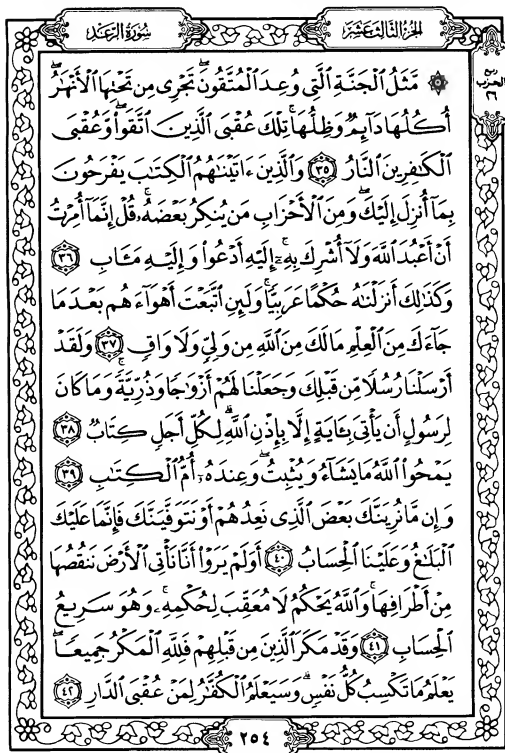 سُورَةُ الرَّعْدِ
الجُزْءُ الثَّالِثَ عَشَرَ
ربع
الحزب
٢٦
۞ مَّثَلُ ٱلْجَنَّةِ ٱلَّتِى وُعِدَ ٱلْمُتَّقُونَ ۖ تَجْرِى مِن تَحْتِهَا ٱلْأَنْهَٰرُ ۖ
أُكُلُهَا دَآئِمٌ وَظِلُّهَا ۚ تِلْكَ عُقْبَى ٱلَّذِينَ ٱتَّقَوا۟ ۖ وَّعُقْبَى
ٱلْكَٰفِرِينَ ٱلنَّارُ ٣٥ وَٱلَّذِينَ ءَاتَيْنَٰهُمُ ٱلْكِتَٰبَ يَفْرَحُونَ
بِمَآ أُنزِلَ إِلَيْكَ ۖ وَمِنَ ٱلْأَحْزَابِ مَن يُنكِرُ بَعْضَهُۥ ۚ قُلْ إِنَّمَآ أُمِرْتُ
أَنْ أَعْبُدَ ٱللَّهَ وَلَآ أُشْرِكَ بِهِۦٓ ۚ إِلَيْهِ أَدْعُوا۟ وَإِلَيْهِ مَـَٔابِ ٣٦
وَكَذَٰلِكَ أَنزَلْنَٰهُ حُكْمًا عَرَبِيًّا ۚ وَلَئِنِ ٱتَّبَعْتَ أَهْوَآءَهُم بَعْدَ مَا
جَآءَكَ مِنَ ٱلْعِلْمِ مَا لَكَ مِنَ ٱللَّهِ مِن وَلِىٍّ وَلَا وَاقٍ ٣٧ وَلَقَدْ
أَرْسَلْنَا رُسُلًا مِّن قَبْلِكَ وَجَعَلْنَا لَهُمْ أَزْوَٰجًا وَذُرِّيَّةً ۚ وَمَا كَانَ
لِرَسُولٍ أَن يَأْتِىَ بِـَٔايَةٍ إِلَّا بِإِذْنِ ٱللَّهِ ۗ لِكُلِّ أَجَلٍ كِتَابٌ ٣٨
يَمْحُوا۟ ٱللَّهُ مَا يَشَآءُ وَيُثْبِتُ ۖ وَعِندَهُۥٓ أُمُّ ٱلْكِتَٰبِ ٣٩
وَإِن مَّا نُرِيَنَّكَ بَعْضَ ٱلَّذِى نَعِدُهُمْ أَوْ نَتَوَفَّيَنَّكَ فَإِنَّمَا عَلَيْكَ
ٱلْبَلَٰغُ وَعَلَيْنَا ٱلْحِسَابُ ٤٠ أَوَلَمْ يَرَوْا۟ أَنَّا نَأْتِى ٱلْأَرْضَ نَنقُصُهَا
مِنْ أَطْرَافِهَا ۚ وَٱللَّهُ يَحْكُمُ لَا مُعَقِّبَ لِحُكْمِهِۦ ۚ وَهُوَ سَرِيعُ
ٱلْحِسَابِ ٤١ وَقَدْ مَكَرَ ٱلَّذِينَ مِن قَبْلِهِمْ فَلِلَّهِ ٱلْمَكْرُ جَمِيعًا ۖ
يَعْلَمُ مَا تَكْسِبُ كُلُّ نَفْسٍ ۗ وَسَيَعْلَمُ ٱلْكُفَّٰرُ لِمَنْ عُقْبَى ٱلدَّارِ ٤٢
٢٥٤